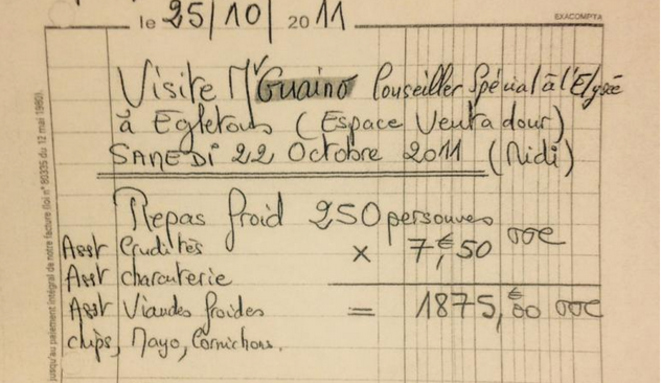 EXACOMPTA
le 25/10/ 2011
Visite Mr Guaino Conseiller Spécial à l'Elysée
à Egletons (Espace Ventadour)
SAMEDI 22 Octobre 2011 (Midi)
Repas froid 250 personnes
Asst Crudités x 7,€50
Asst charcuterie
Asst Viandes froides = 1875,€00
chips, Mayo, Cornichons.
jusqu'au paiement intégral de notre facture (loi n° 80335 du 12 mai 1980).